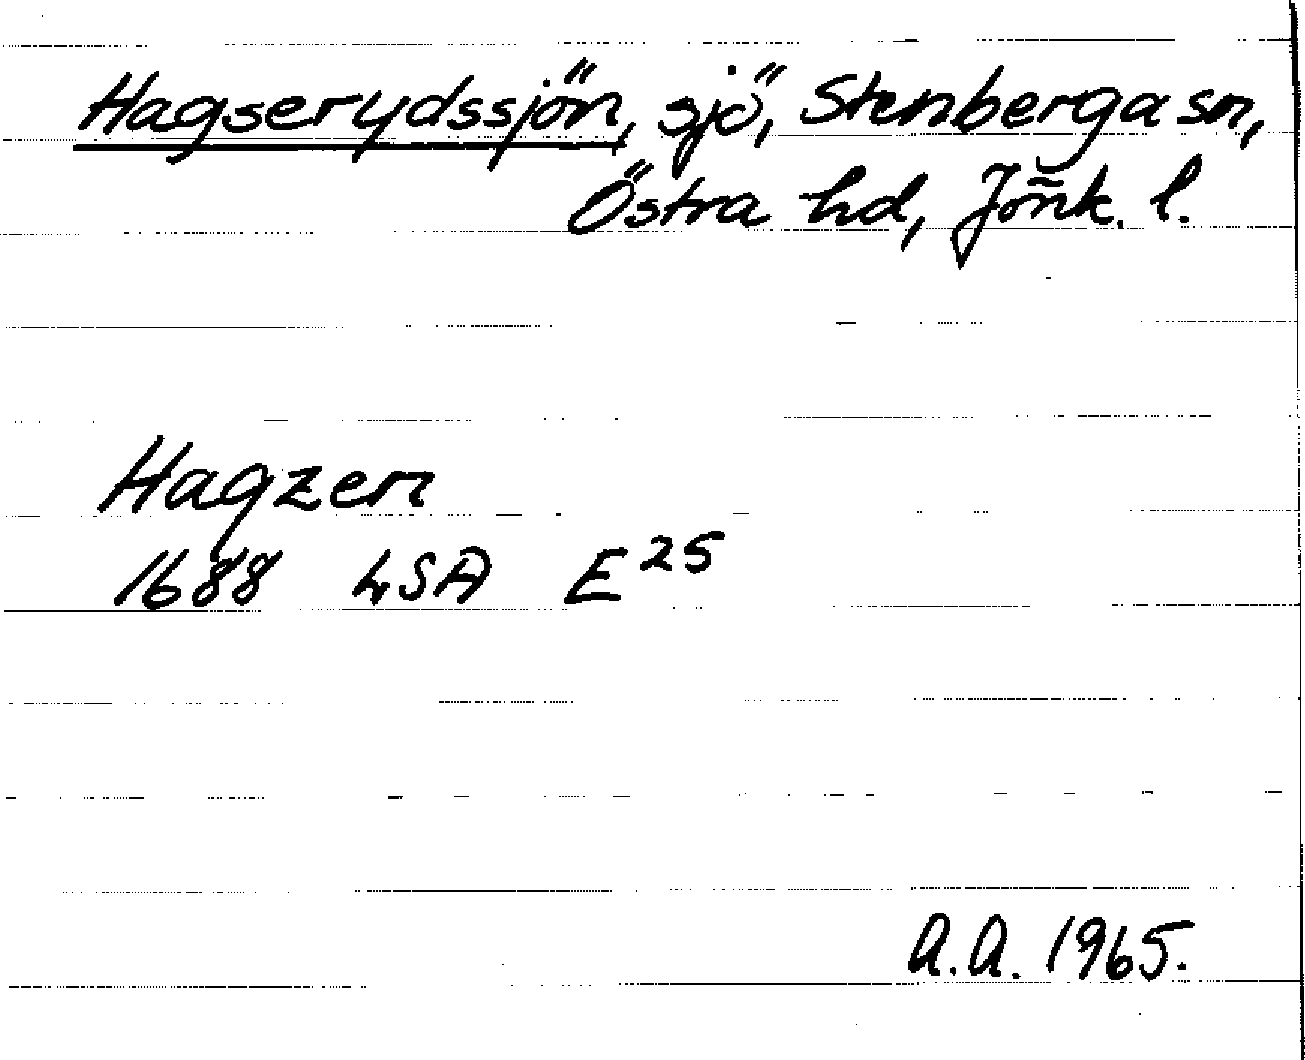 Hagserydssjön, sjö, Stenberga sn,
Östra hd, Jönk. l.
Hagzen
1688 LSA E25
A.A. 1965.